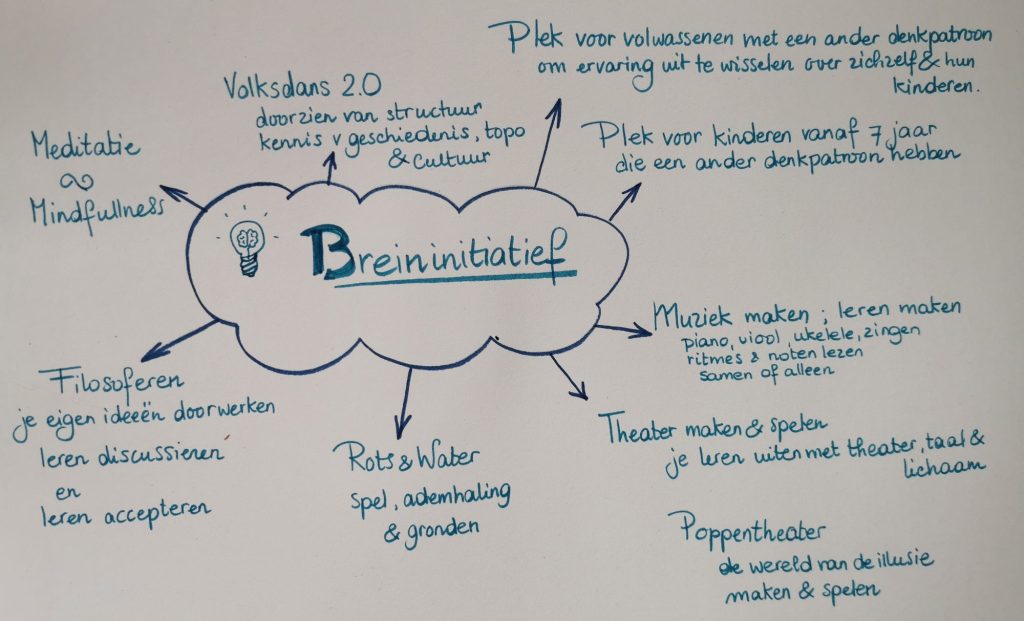 Breininitiatief
Plek voor volwassenen met een ander denkpatroon
om ervaring uit te wisselen over zichzelf & hun
kinderen.
Plek voor kinderen vanaf 7 jaar
die een ander denkpatroon hebben
Muziek maken ; leren maken
piano, viool, ukelele, zingen
ritmes & noten lezen
samen of alleen
Theater maken & spelen
je leren uiten met theater, taal &
lichaam
Poppentheater
de wereld van de illusie
maken & spelen
Rots & Water
spel, ademhaling
& gronden
Filosoferen
je eigen ideeën doorwerken
leren discussieren
en
leren accepteren
Meditatie
Mindfullness
Volksdans 2.0
doorzien van structuur
kennis v geschiedenis, topo
& cultuur